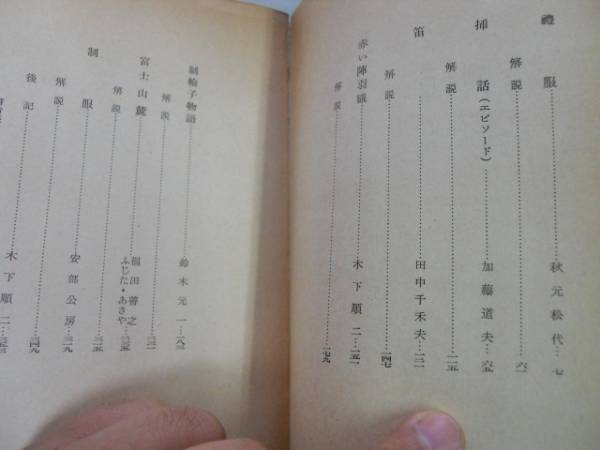 禮服……秋元松代…七
解説……六一
挿話（エピソード）……加藤道夫…六五
解説……一一五
笛……田中千禾夫…一二一
解説……一四七
赤い陣羽織……木下順二…一五一
解説……一七九
制輪子物語……鈴木元一…一八三
解説……
富士山麓……福田善之
ふじた・あさや
解説……
制服……安部公房…
後記……
木下順二…